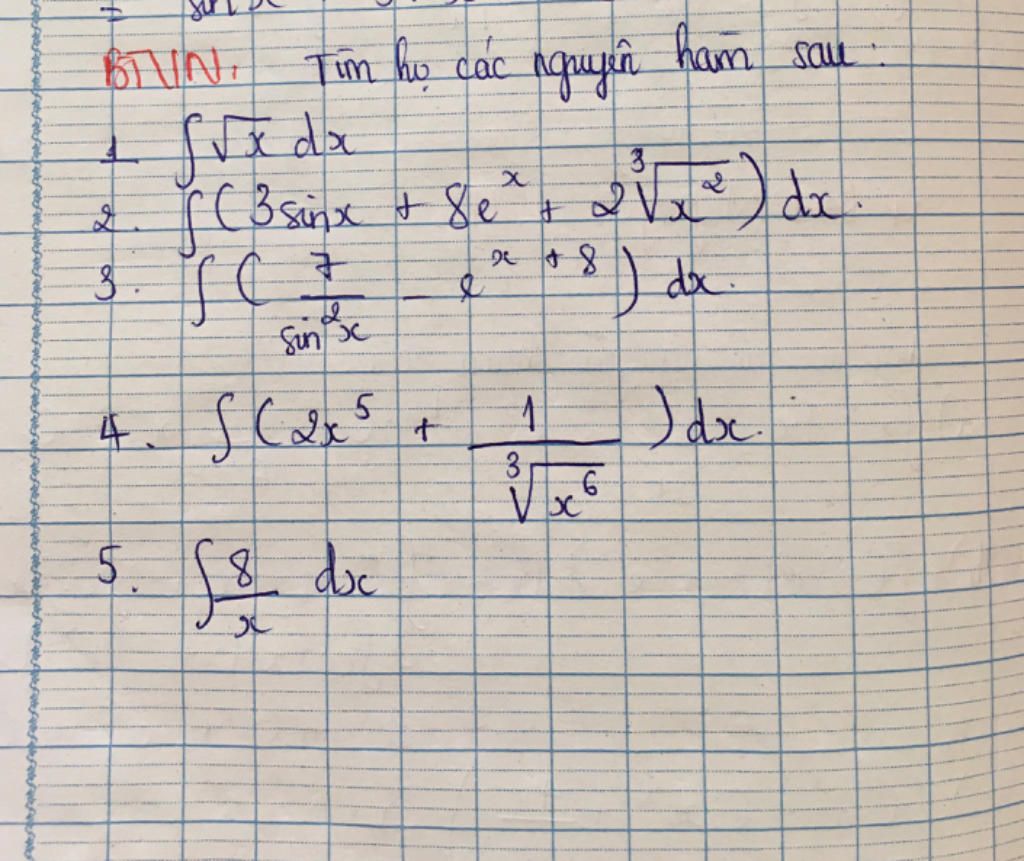 = sin x
BTVN. Tìm họ các nguyên hàm sau:
1 ∫√x dx
2. ∫(3sinx + 8e^x + 2∛(x^2)) dx.
3. ∫(7/sin^2x - e^(x+8)) dx.
4. ∫(2x^5 + 1/∛(x^6)) dx.
5. ∫8/x dx